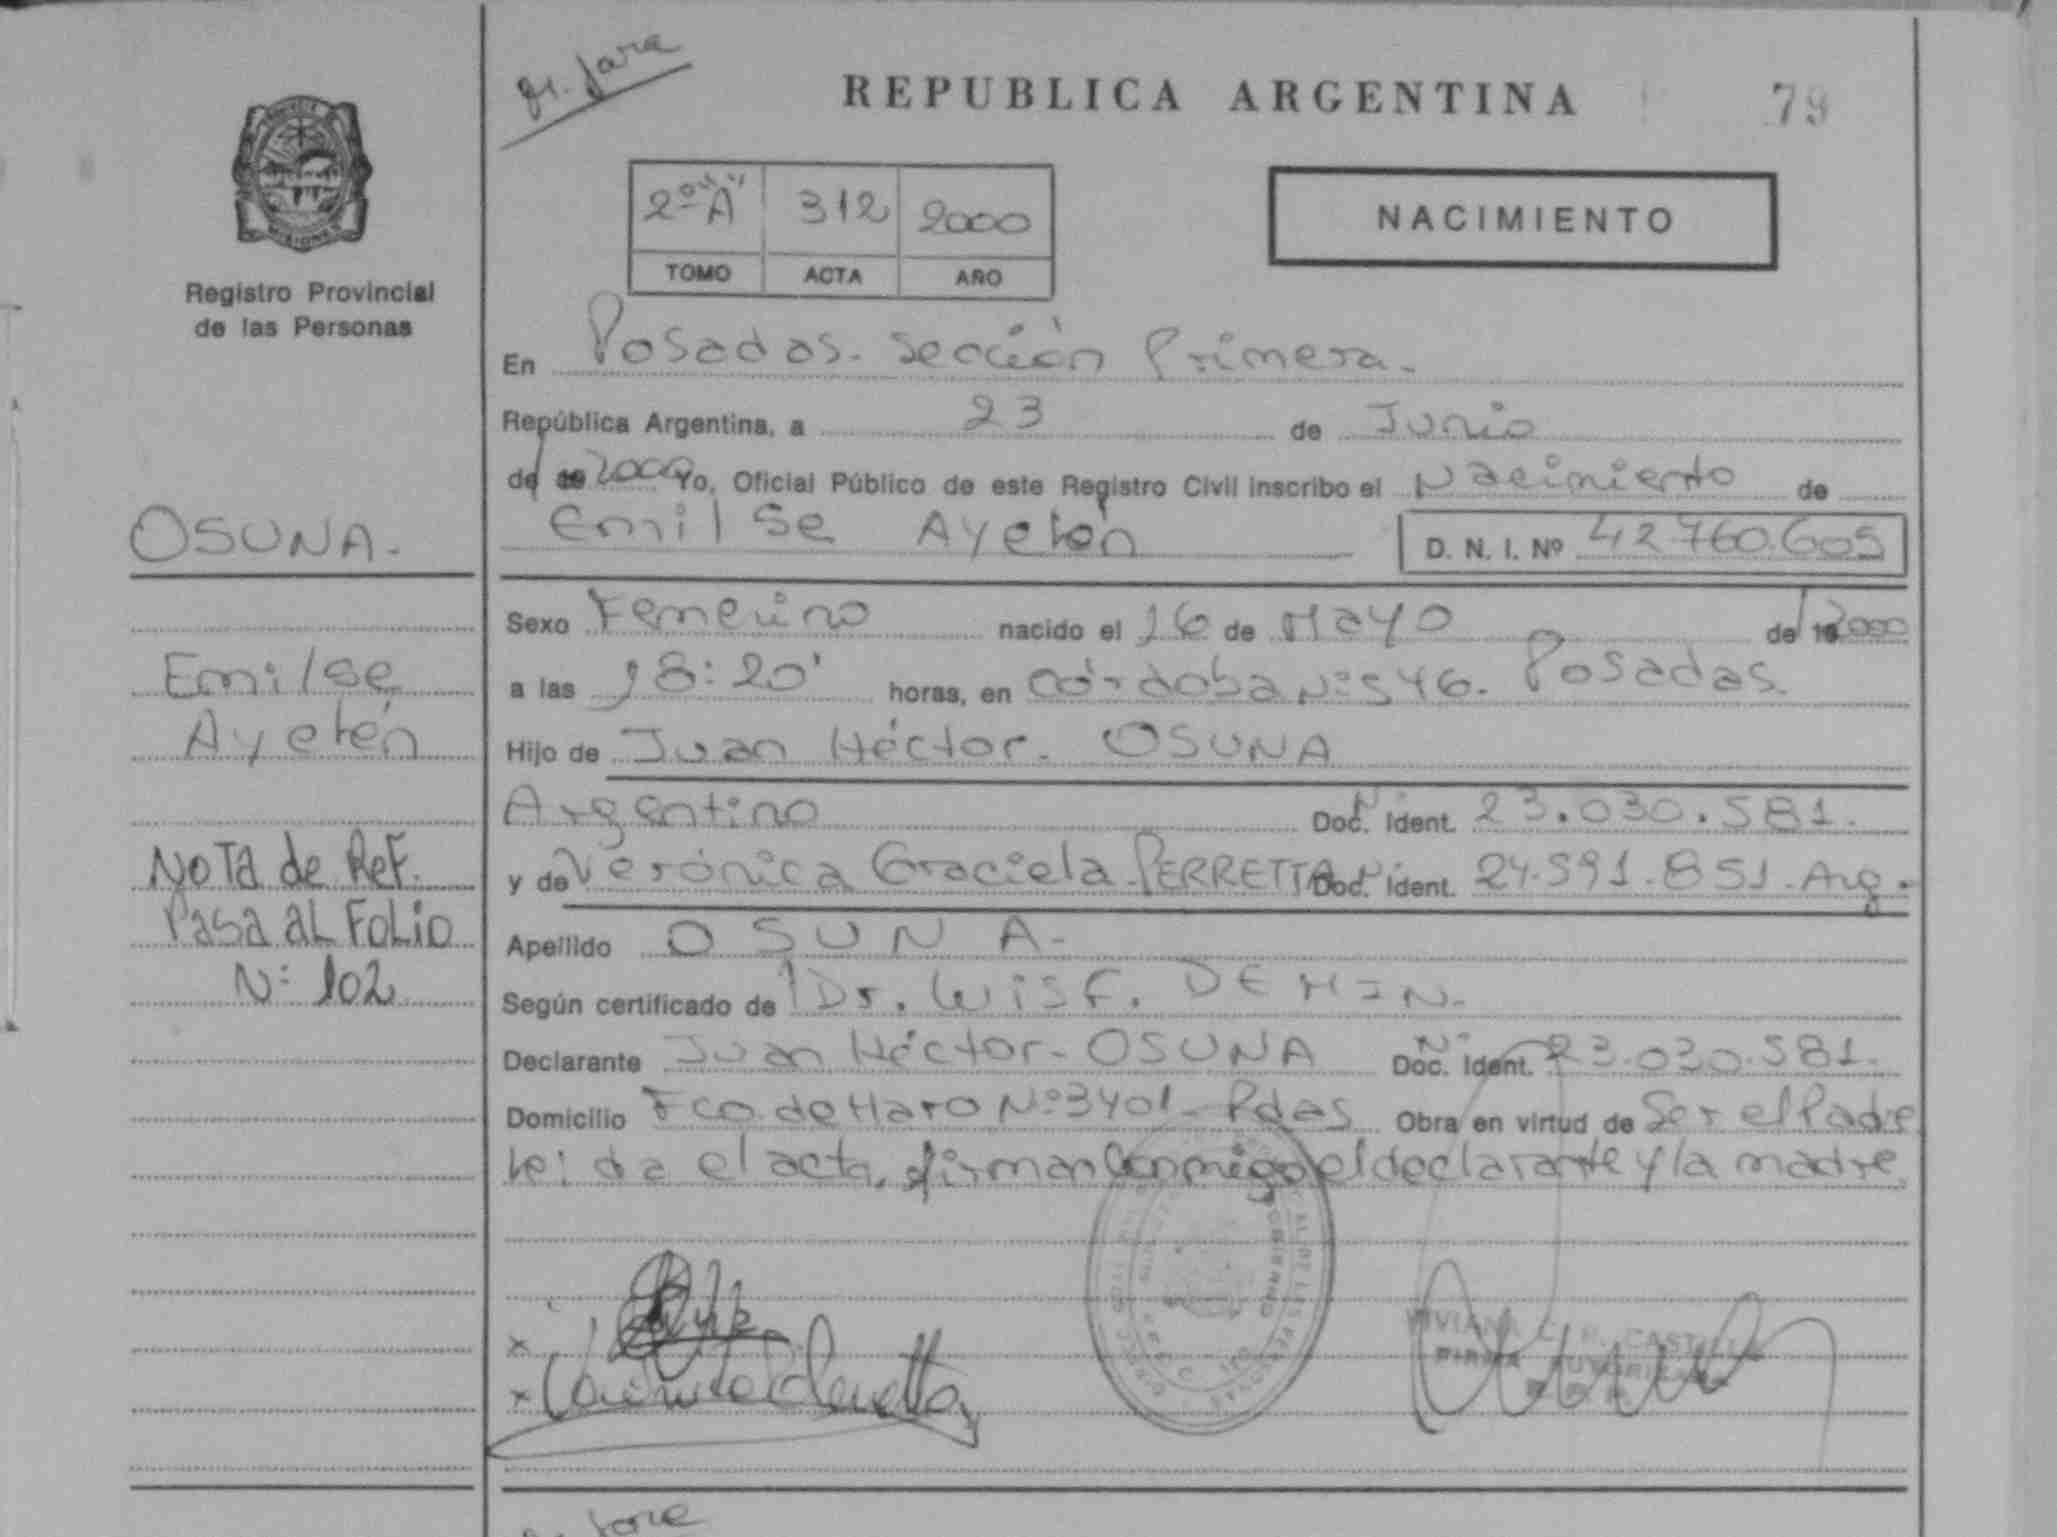 H. Jara
REPUBLICA ARGENTINA
79
PROVINCIA DE
MISIONES
Registro Provincial
de las Personas
2º "A" 312 2000
TOMO ACTA AÑO
NACIMIENTO
En Posadas. Sección Primera.
República Argentina, a 23 de Junio
de 19 2000 Yo, Oficial Público de este Registro Civil inscribo el Nacimiento de
Emilse Ayetén D. N. I. Nº 42.760.605
Sexo Femenino nacido el 16 de Mayo de 19 2000
a las 18:20' horas, en Córdoba Nº 546. Posadas.
Hijo de Juan Héctor. OSUNA
Argentino Doc. Ident. 23.030.581.
y de Verónica Graciela PERRETTA Doc. Ident. 24.591.851. Arg.
Apellido OSUNA.
Según certificado de Dr. Wisf.
Declarante Juan Héctor. OSUNA Doc. Ident. 23.030.581.
Domicilio Fco. de Haro Nº 3401 - Pdas Obra en virtud de Ser el Padre
Leida el acta, firman Conmigo el declarante y la madre.
OSUNA.
Emilse
Ayetén
NOTA de REF.
PASA AL FOLIO
Nº 102
x
x
VIVIANA CASTILLO
FIRMA AUTORIZADA
Jara